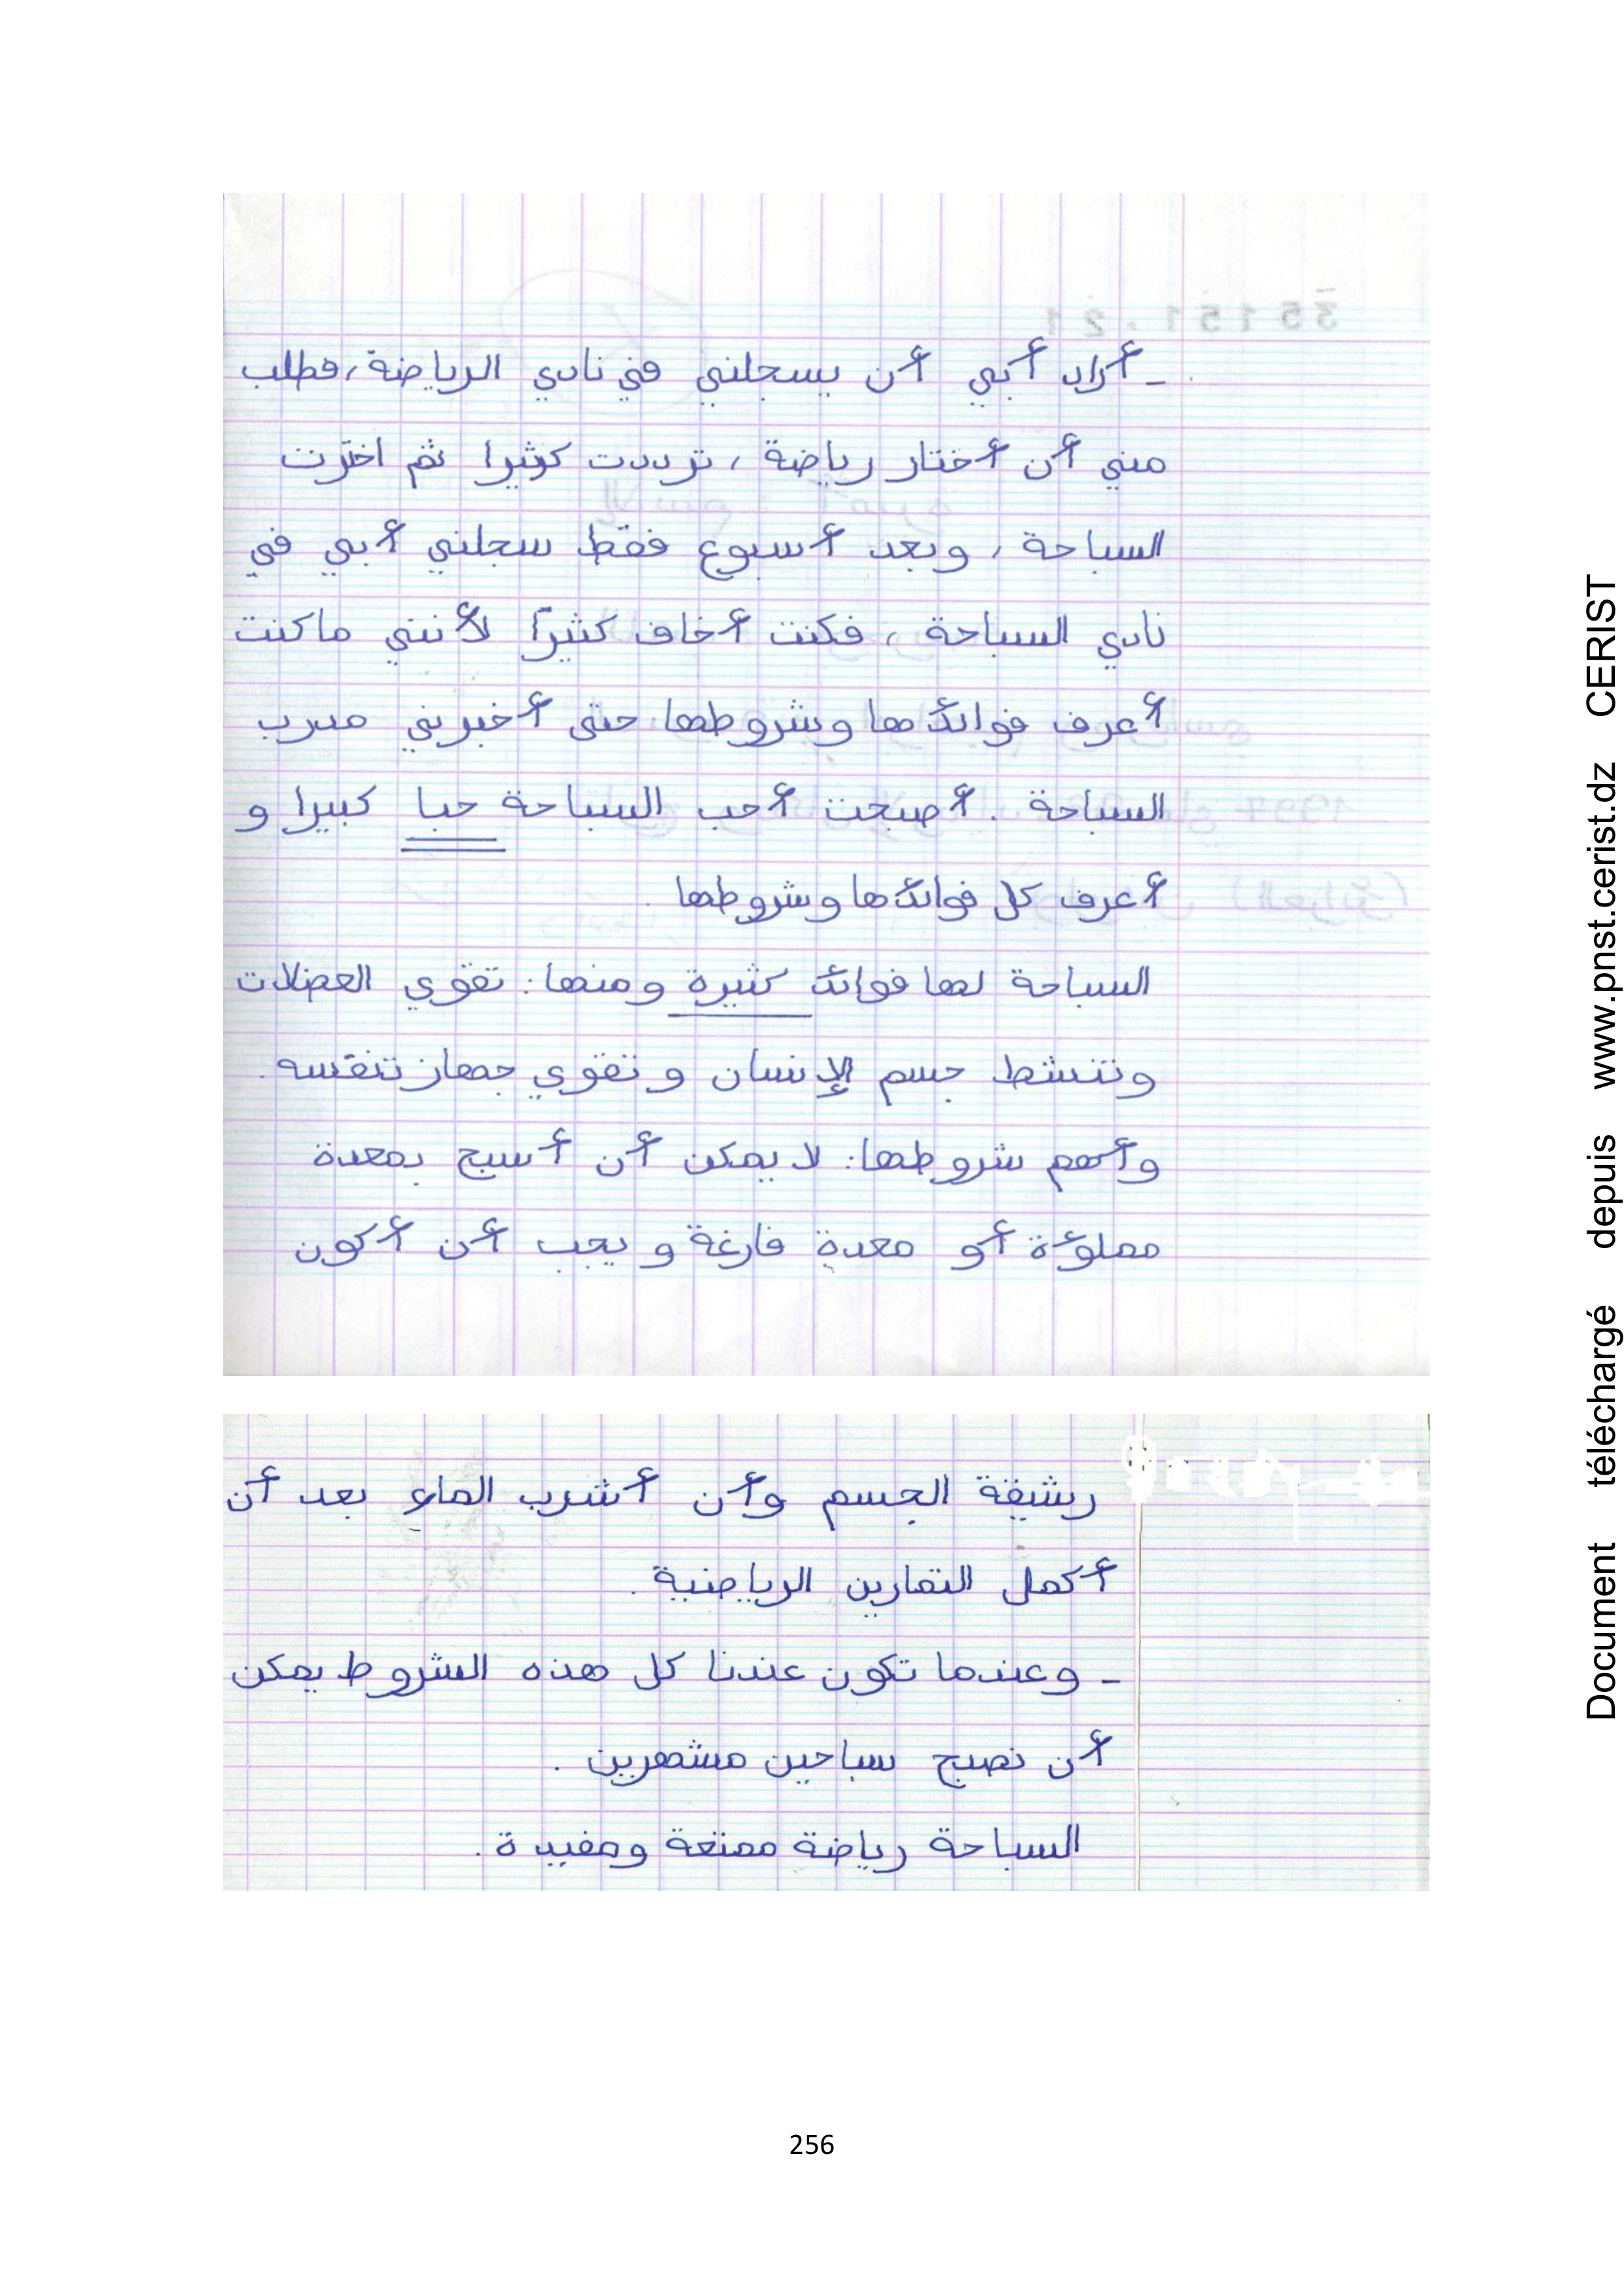 ـ أراد أبي أن يسجلني في نادي الرياضة، فطلب
مني أن أختار رياضة، ترددت كثيرا ثم اخترت
السباحة، وبعد أسبوع فقط سجلني أبي في
نادي السباحة، فكنت أخاف كثيرًا لأنني ما كنت
أعرف فوائدها وشروطها حتى أخبرني مدرب
السباحة. أصبحت أحب السباحة حبا كبيرا و
أعرف كل فوائدها وشروطها.
السباحة لها فوائد كثيرة ومنها: تقوي العضلات
وتنشط جسم الإنسان و تقوي جهاز تنفسه.
وأهم شروطها: لا يمكن أن أسبح بمعدة
مملوءة أو معدة فارغة و يجب أن أكون
رشيقة الجسم وأن أشرب الماء بعد أن
أكمل التمارين الرياضية.
ـ وعندما تكون عندنا كل هذه الشروط يمكن
أن نصبح سباحين مشهرين.
السباحة رياضة ممتعة ومفيدة.
256
Document téléchargé depuis www.pnst.cerist.dz CERIST